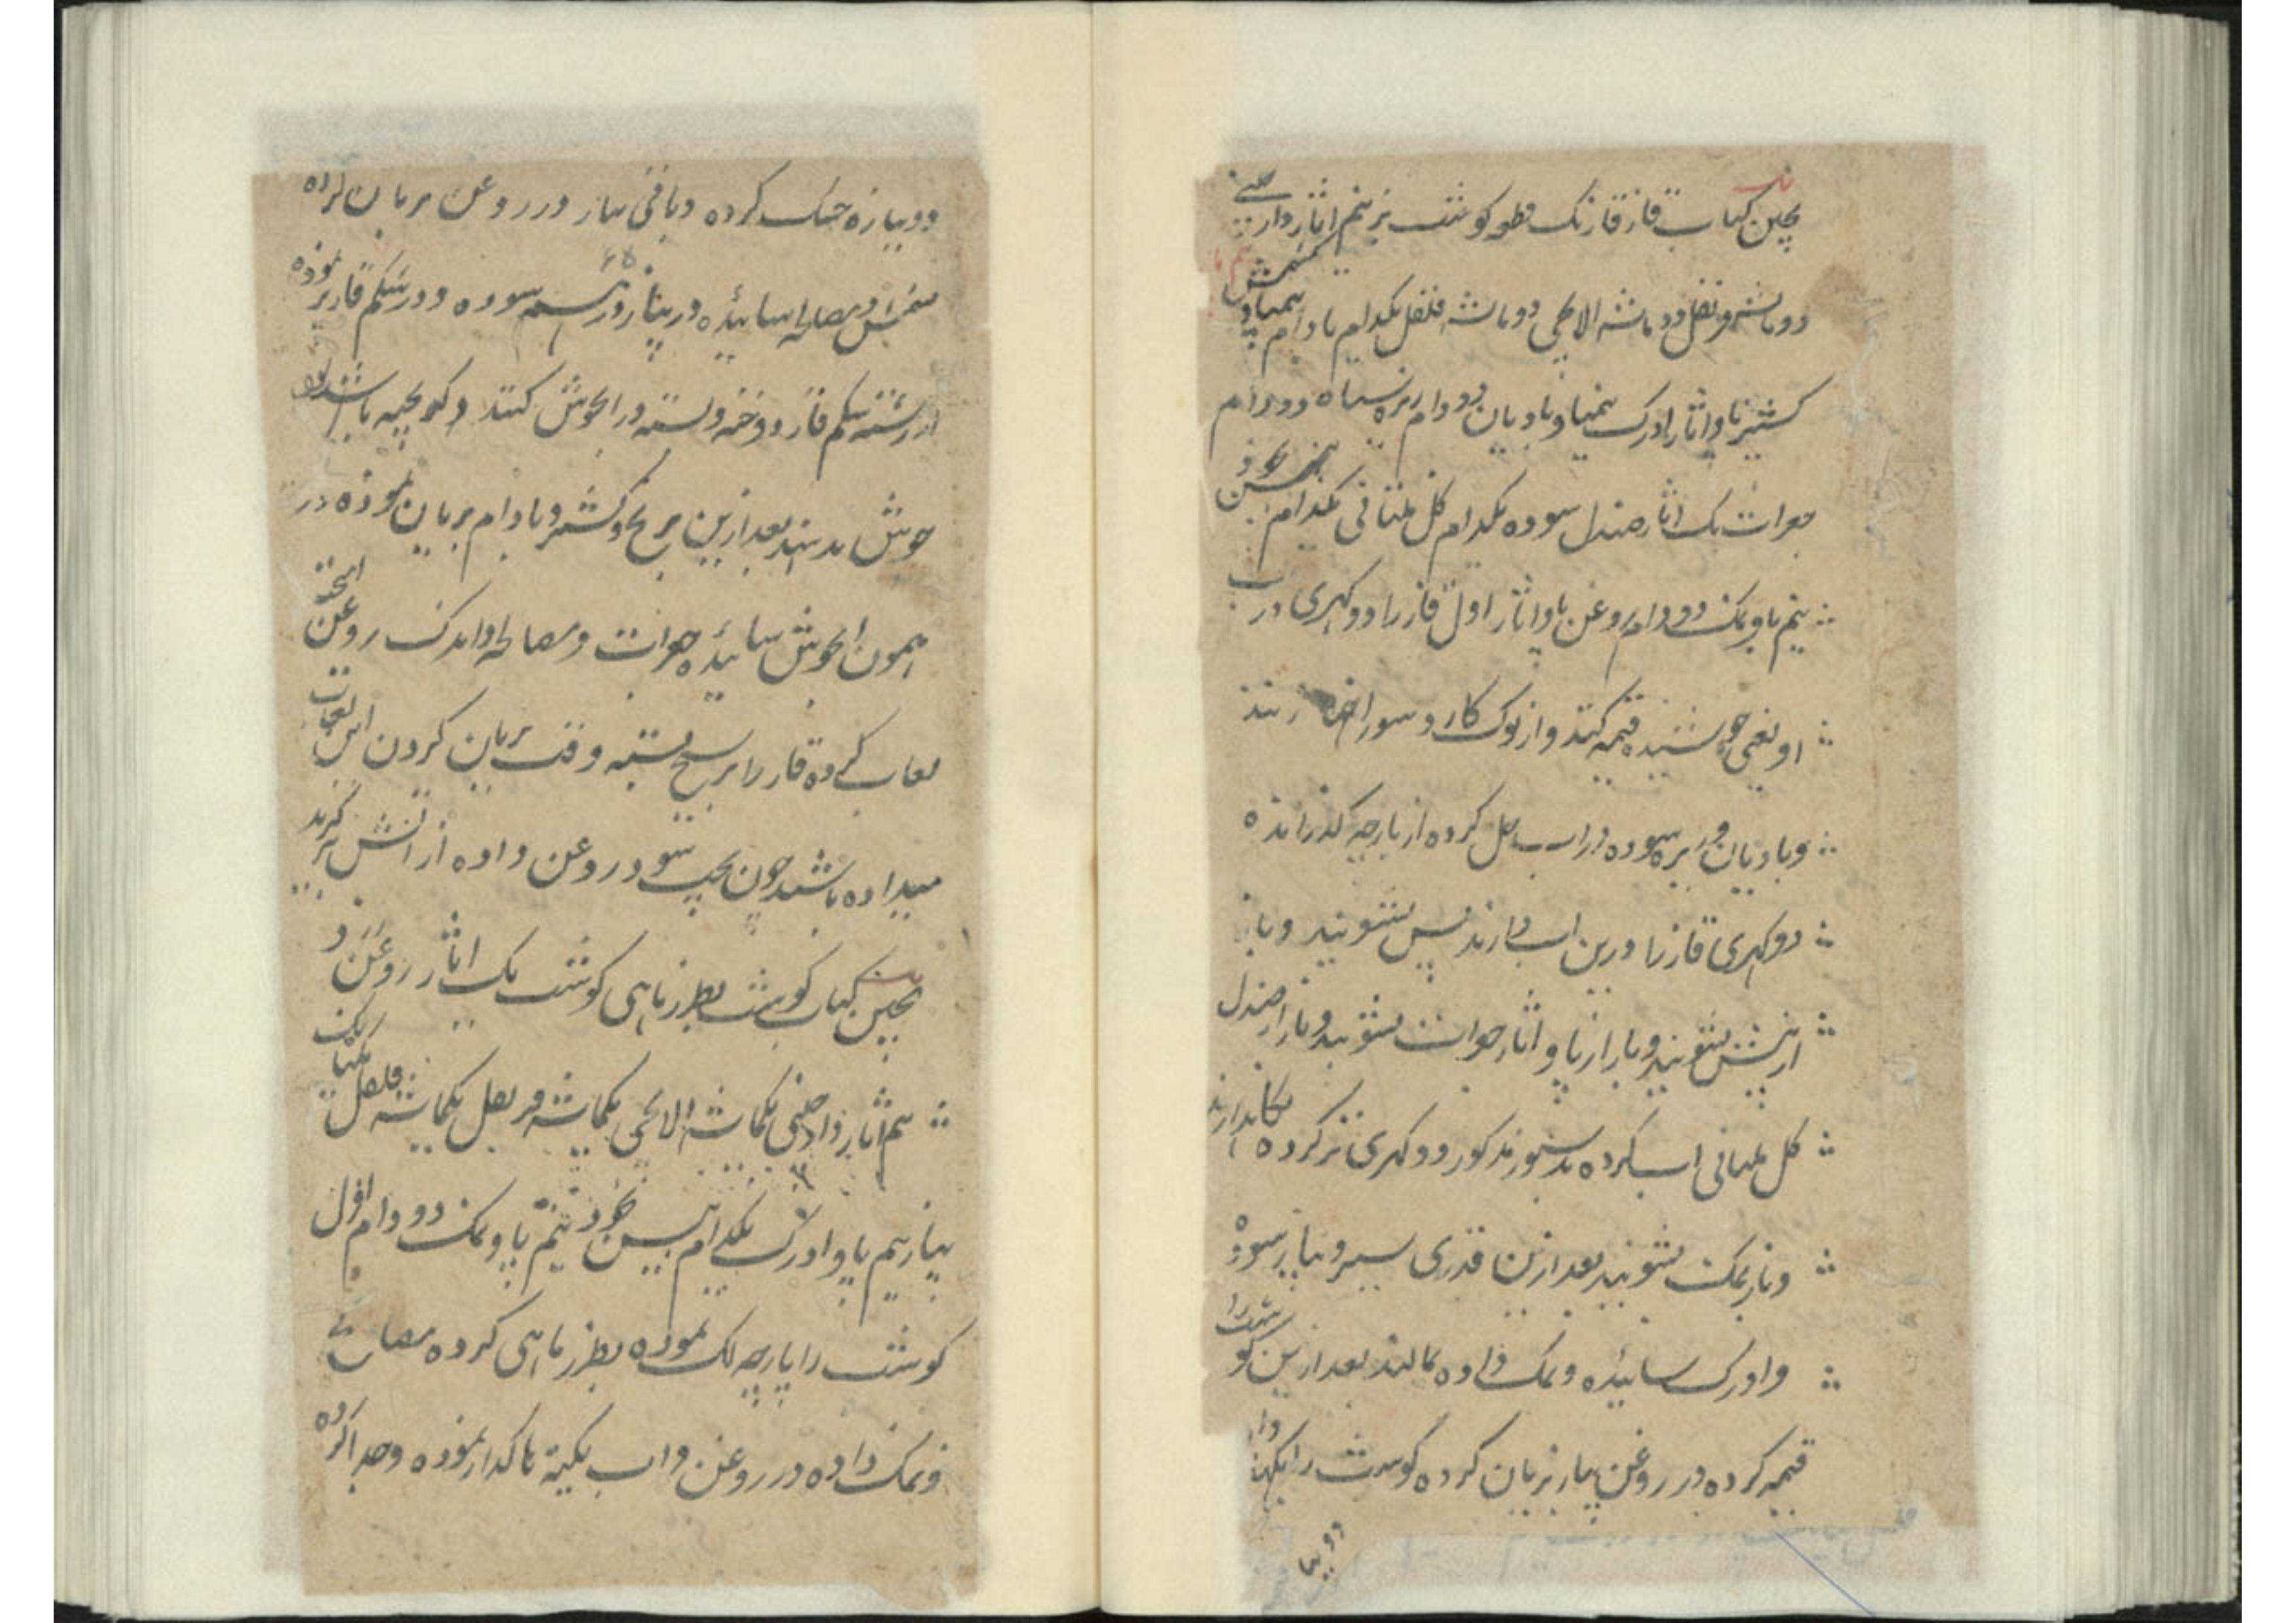 پختن کباب قاز قازیک قطور گوشت بز نیم اثار دارچینی
دو ماشه قرنفل دو ماشه الاچی دو ماشه فلفل یکدام بادام نیمپاو کشمش
کشنیز پاو اثار ادرک نیمپاو بادیان دو دام زیره سیاه دو دام
جغرات یک اثار صندل سوده یکدام گل ملتانی یکدام بیسن نخود
نیم پاو نمک دو دام روغن پاو اثار اول قاز را دو گهری در آب
او یعنی جوشیده قیمه کنند و از نوک کارد سوراخها زنند
و بادیان و زیره سوده در آب حل کرده از پارچه گذرانده
دو گهری قاز را درین آب دارند پس بشویند و باز
از بیسن بشویند و باز از پاو اثار جغرات بشویند و باز از صندل
گل ملتانی آب کرده بدستور مذکور دو گهری تر کرده نگاهدارند
و باز نمک بشویند بعد ازین قدری سیر و پیاز سوده
و ادرک سائیده و نمک داده بمالند بعد ازین گوشت را
قیمه کرده در روغن پیاز بریان کرده گوشت را بگهار
دو پیا
دو پیازه خشک کرده و باقی پیاز در روغن بریان کرده
کشمش و مصالح سائیده در پیاز و زیره سوده و در شکم قاز پر نموده
از رشته شکم قاز دوخته و بسته در آبجوش کنند و گو بچیه باشد
جوش بدهند بعد ازین برنج و کشمش و بادام بریان نموده در
همون آبجوش سائیده جغرات و مصالح و اندک روغن آمیخته
لعاب کرده قاز را بر سیخ بسته وقت بریان کردن این لعاب
میداده باشند چون پخت شود روغن داده از آتش برگیرند
پختن کباب گوشت بطرز ماهی گوشت یک اثار روغن زرد
نیم اثار دارچینی یکماشه الاچی یکماشه قرنفل یکماشه فلفل
پیاز نیم پاو ادرک یکدام بیسن نخود نیم پاو نمک دو دام اول
گوشت را پارچه لک نموده بطرز ماهی کرده مصالح
و نمک داده در روغن و آب یخنی تا گداز نموده و جدا کرده